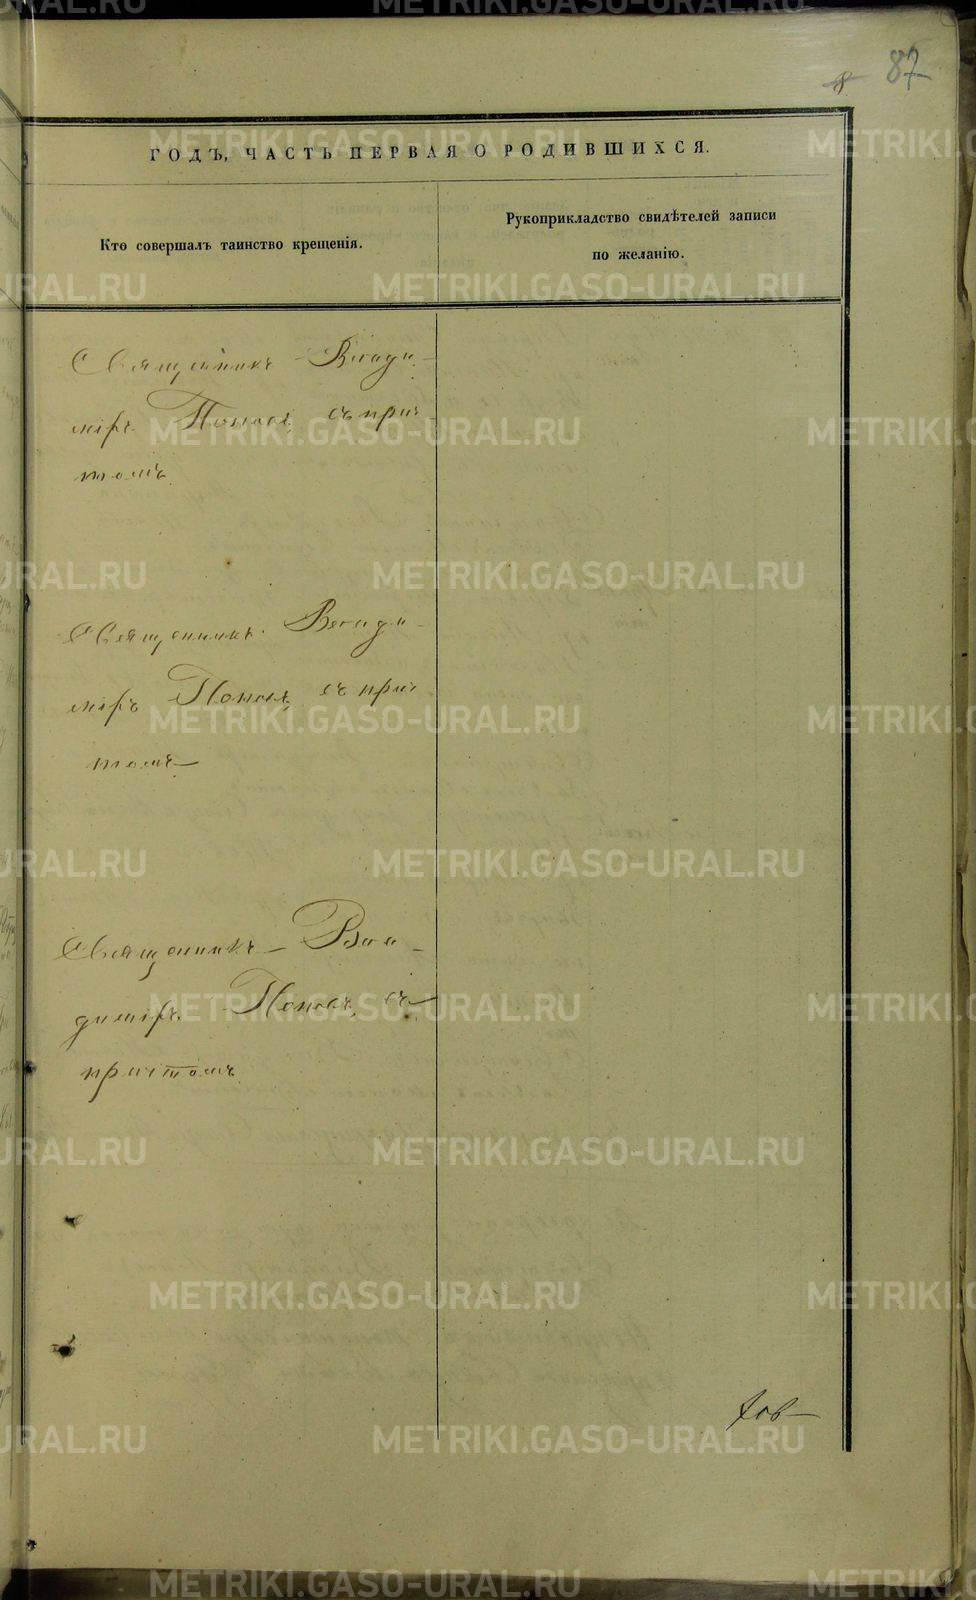 87
8
ГОДЪ, ЧАСТЬ ПЕРВАЯ О РОДИВШИХСЯ.
Кто совершалъ таинство крещенія.
Рукоприкладство свидѣтелей записи
по желанію.
Священникъ Влади-
міръ Поповъ, съ прич-
томъ.
Священникъ Влади-
міръ Поповъ, съ прич-
томъ
Священникъ Вла-
диміръ Поповъ, съ
причтомъ
METRIKI.GASO-URAL.RU